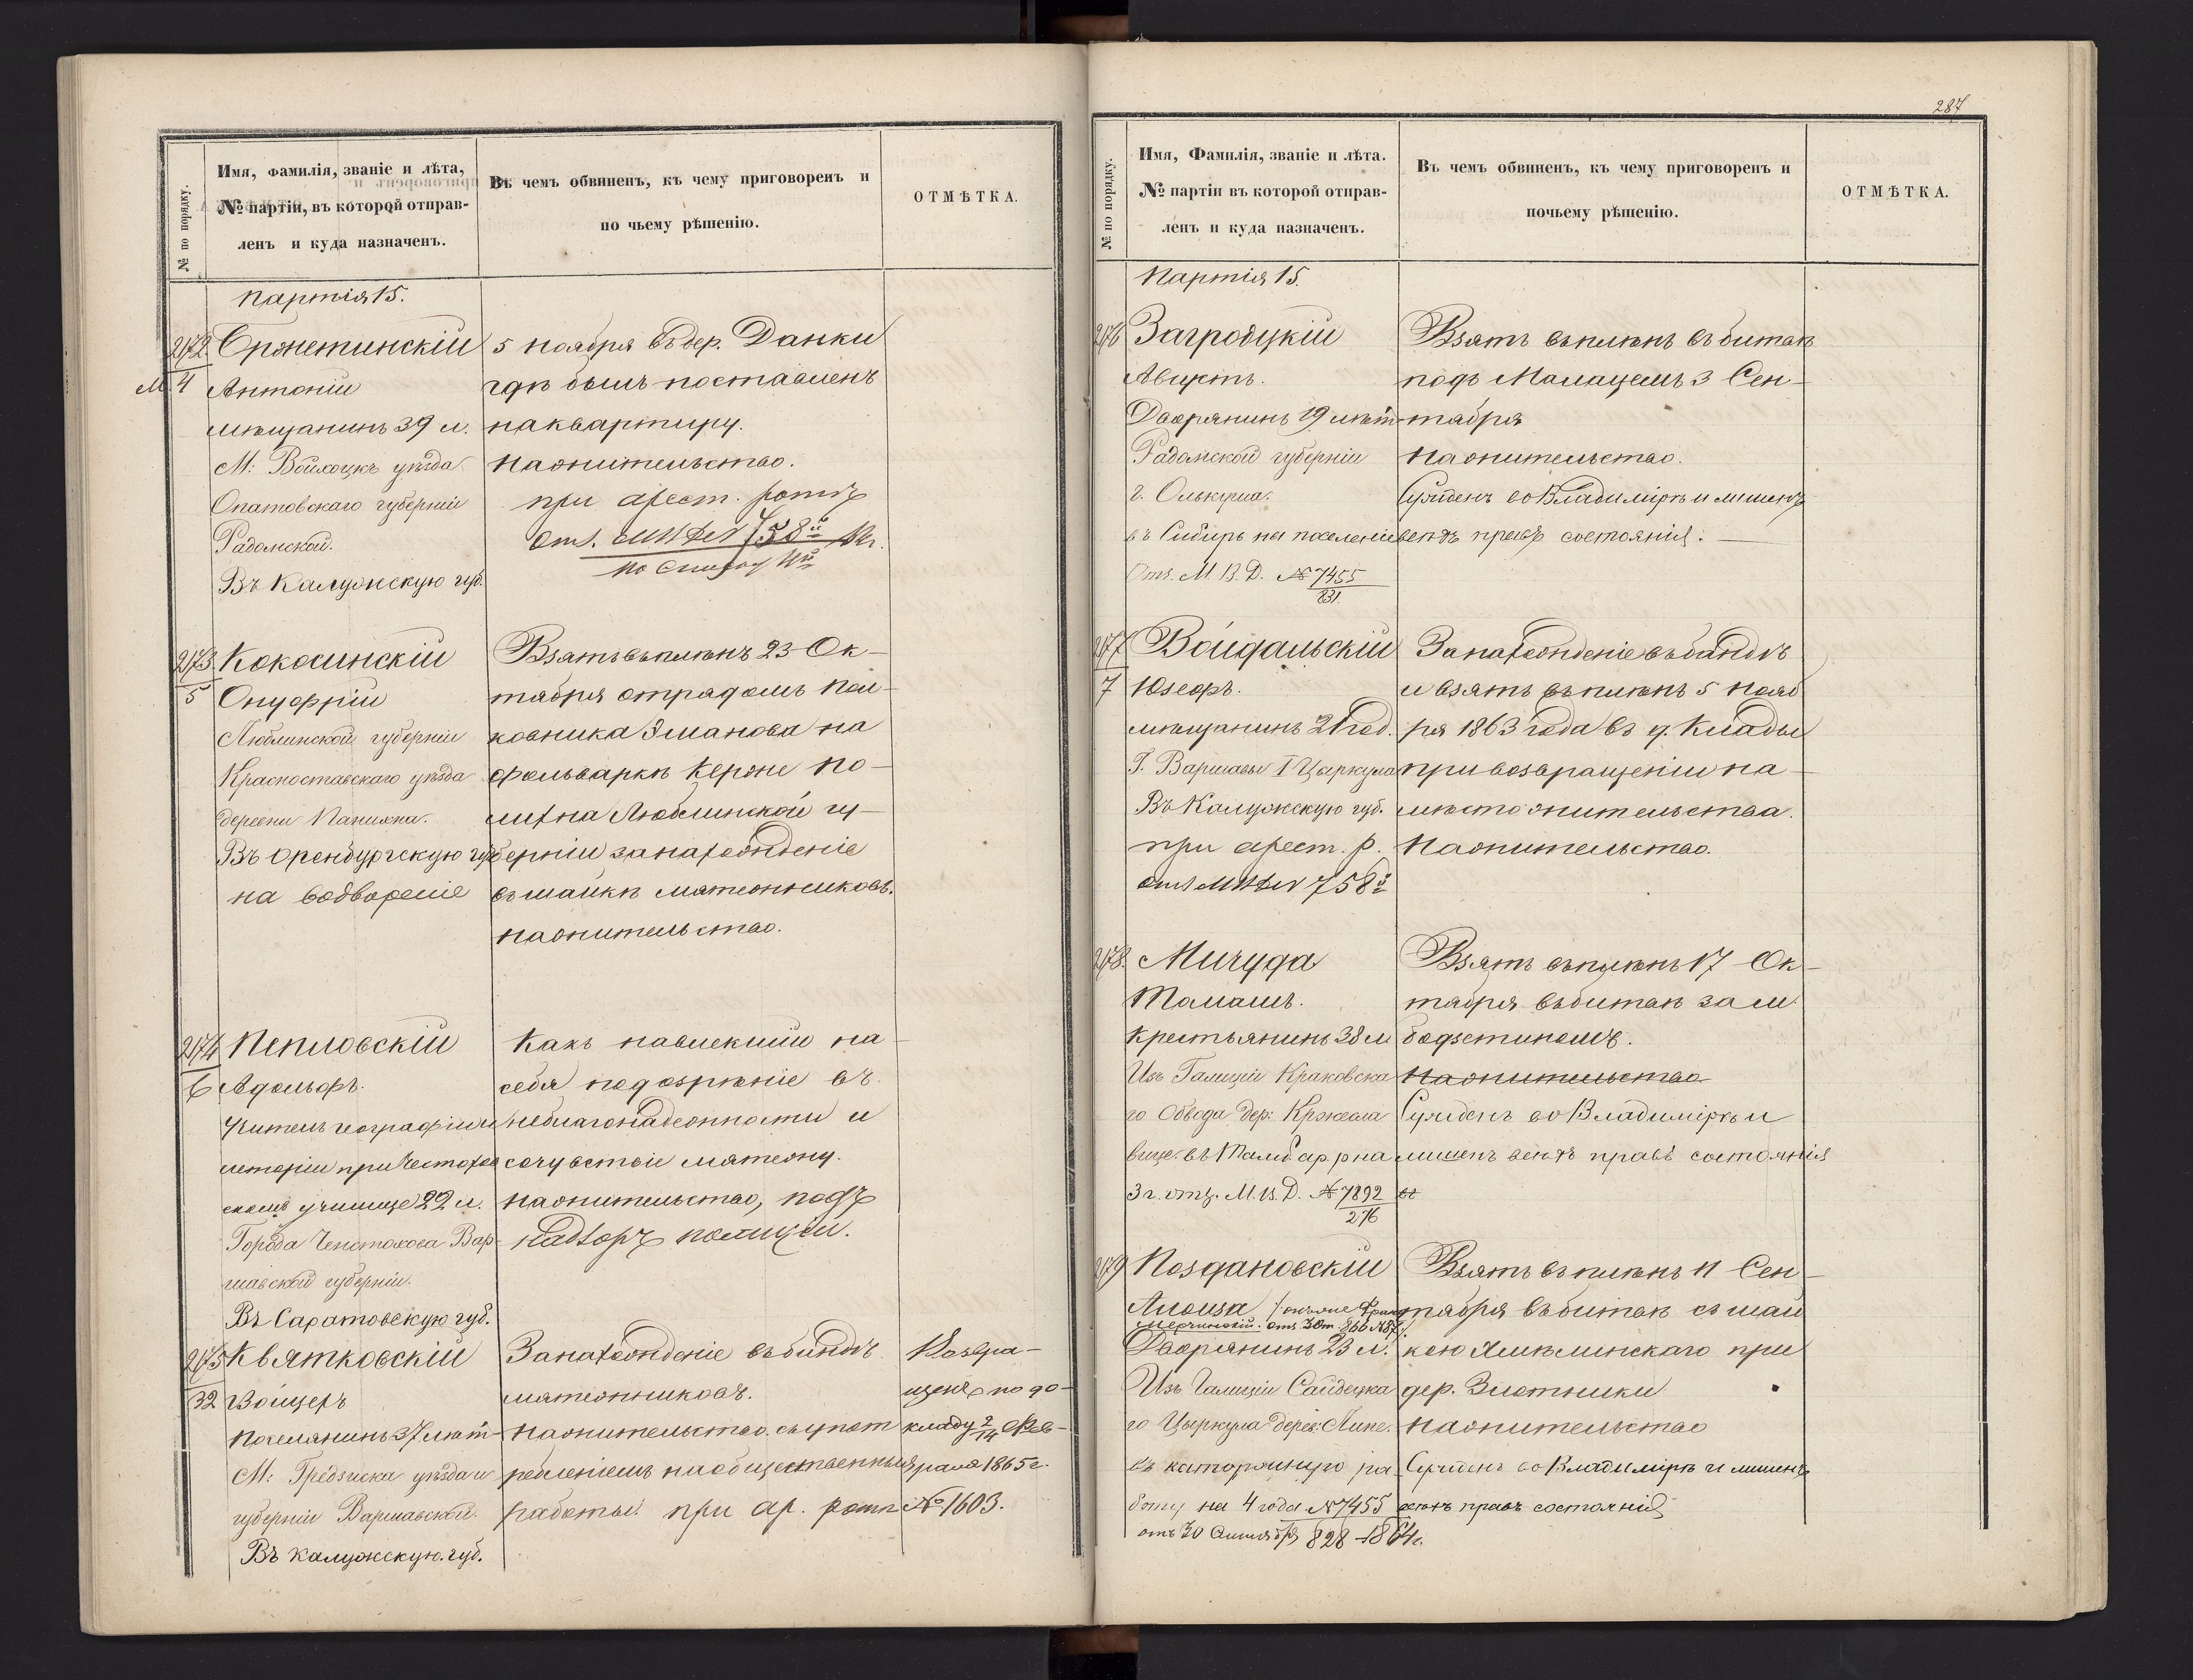 № по порядку.
Имя, фамилія, званіе и лѣта,
№ партіи, въ которой отправ-
ленъ и куда назначенъ.
Въ чемъ обвиненъ, къ чему приговоренъ и
по чьему рѣшенію.
ОТМѢТКА.
Партія 15.
2172. Сржетинскій
М. 4 Антоній
мѣщанинъ 39 л.
М: Войхоцкъ уѣзда
Опатовскаго губерніи
Радомской.
Въ Калужскую губ.
5 Ноября въ дер. Данки
гдѣ былъ поставленъ
на квартиру.
На жительство.
при арест. ротѣ
по списку
2173. Кокосинскій
5 Онуфрій
Люблинской губерніи
Красноставскаго уѣзда
деревни
Въ Оренбургскую губ
на водвореніе
Взятъ въ плѣнъ 23 Ок-
тября отрядомъ Пол-
ковника Эманова на
фольваркѣ
Люблинской гу-
берніи за нахожденіе
въ шайкѣ мятежниковъ.
На жительство.
2174 Пепловскій
6 Адольфъ.
Учитель географіи и
исторіи при Честохов
скомъ училище 22 л.
Города Ченстохова Вар-
шавской губерніи.
Въ Саратовскую губ.
Какъ навлекшій на
себя подозрѣніе въ
неблагонадежности и
сочувствіе мятежу.
На жительство, подъ
надзоръ полиціи.
2175 Квятковскій
32 Войцехъ
Поселянинъ 37 лѣтъ
М: Гродзиска уѣзда и
губерніи Варшавской.
Въ Калужскую губ.
За нахожденіе въ бандѣ
мятежниковъ.
На жительство съ упот
ребленіемъ на общественныя
работы при ар. ротѣ
Возвра-
щенъ по до-
кладу 2/14 Фев-
раля 1865 г.
№ 1603.
287
№ по порядку.
Имя, Фамилія, званіе и лѣта.
№ партіи въ которой отправ-
ленъ и куда назначенъ.
Въ чемъ обвиненъ, къ чему приговоренъ и
почьему рѣшенію.
ОТМѢТКА.
Партія 15.
2176 Загродцкій
Августъ.
Дворянинъ 19 лѣтъ
Радомской губерніи
г. Олькуша.
въ Сибирь на поселеніе
Отн. М. В. Д. № 7455
831.
Взятъ въ плѣнъ въ битвѣ
подъ Малацемъ 3 Сен-
тября
На жительство.
Сужденъ во Владимірѣ и лишенъ
всѣхъ правъ состоянія.
2177 Войдальскій
7 Юзефъ.
мѣщанинъ 21 год.
Г. Варшавы I Циркула
Въ Калужскую губ.
при арест. р.
За нахожденіе въ бандѣ
и взятъ въ плѣнъ 5 Нояб
ря 1863 года въ д. Клады
при возвращеніи на
мѣсто жительства.
На жительство.
2178. Мичуда
Томашъ.
Крестьянинъ 38 л
Изъ Галиціи Краковска
го Обвода дер: Кржежа
вице. въ Тамб ар р на
3 г. отн. М. В. Д. № 7892
276
Взятъ въ плѣнъ 17 Ок-
тября въ битвѣ за м.
На жительство
Сужденъ во Владимірѣ и
лишенъ всѣхъ правъ состоянія
2179 Поздановскій
Алоиза
Дворянинъ 23 л.
Изъ Галиціи Сандецка
го Циркула дерев: Липе.
въ каторжную ра
боту на 4 года № 7455
828 1864 г.
Взятъ въ плѣнъ 11 Сен-
тября въ битвѣ съ шай
кою Хмѣлинскаго при
дер. Злотники
На жительство
Сужденъ во Владимірѣ и лишенъ
всѣхъ правъ состоянія